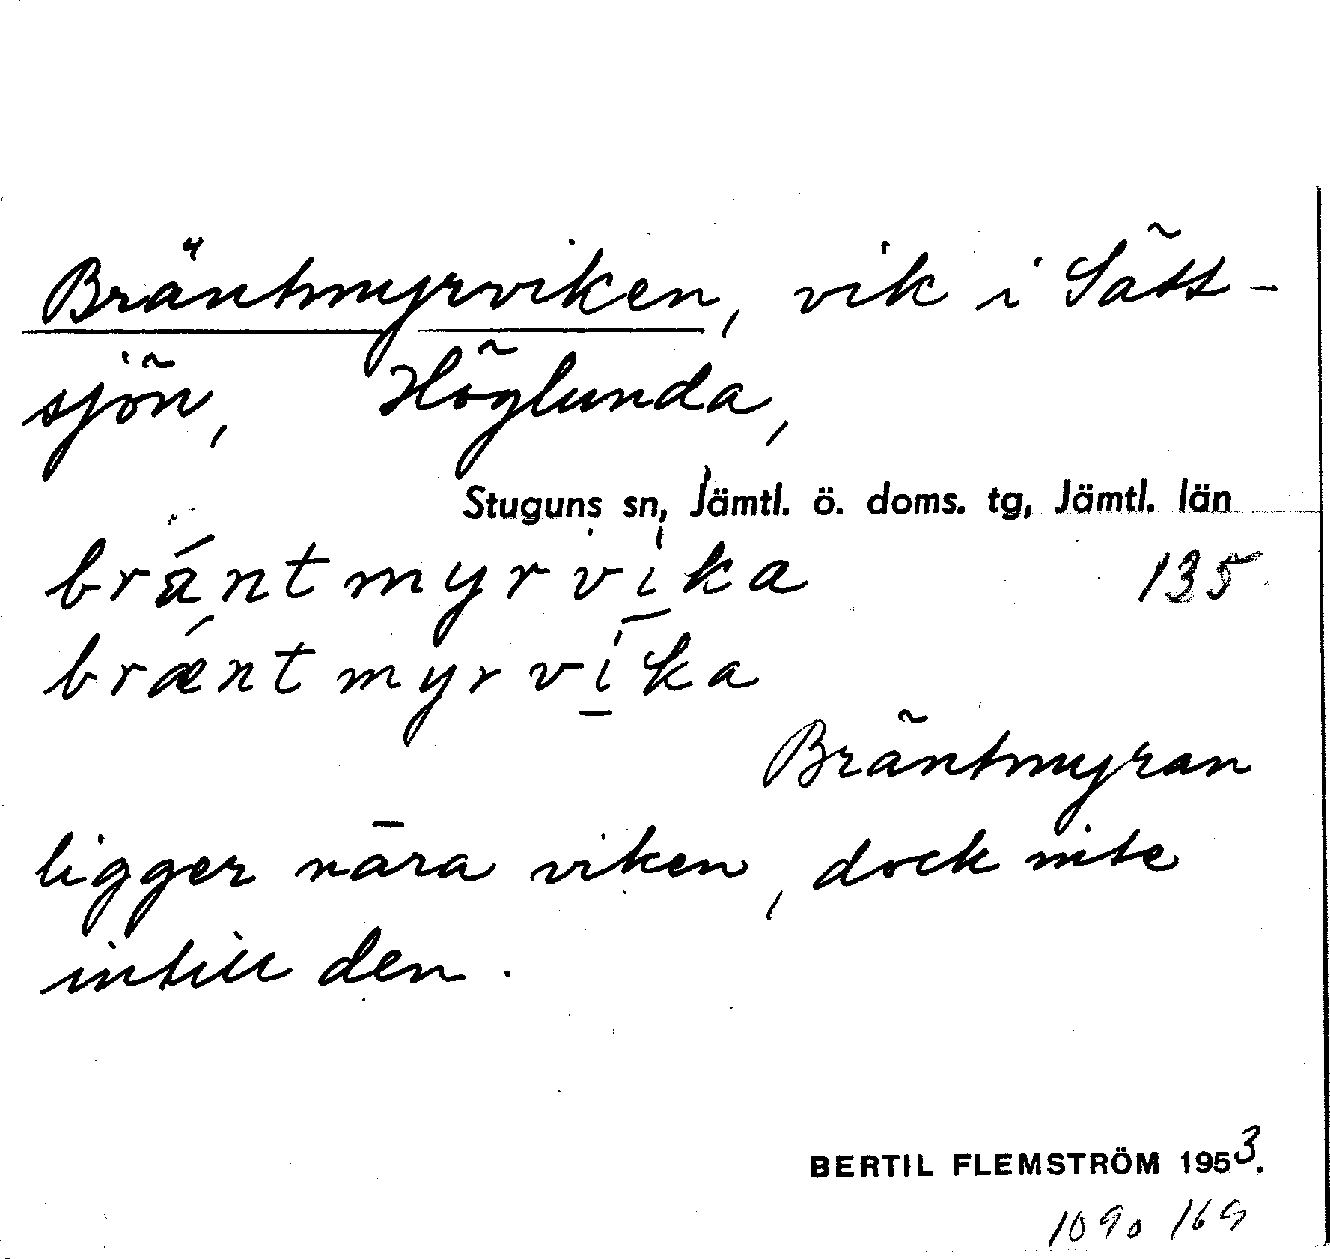 Bräntmyrviken, vik i Sätt-
sjön, Höglunda,
Stuguns sn, Jämtl. ö. doms. tg, Jämtl. län
bräntmyrvika 135
bræntmyrvika
Bräntmyran
ligger nära viken, dock inte
intill den.
BERTIL FLEMSTRÖM 1953.
169